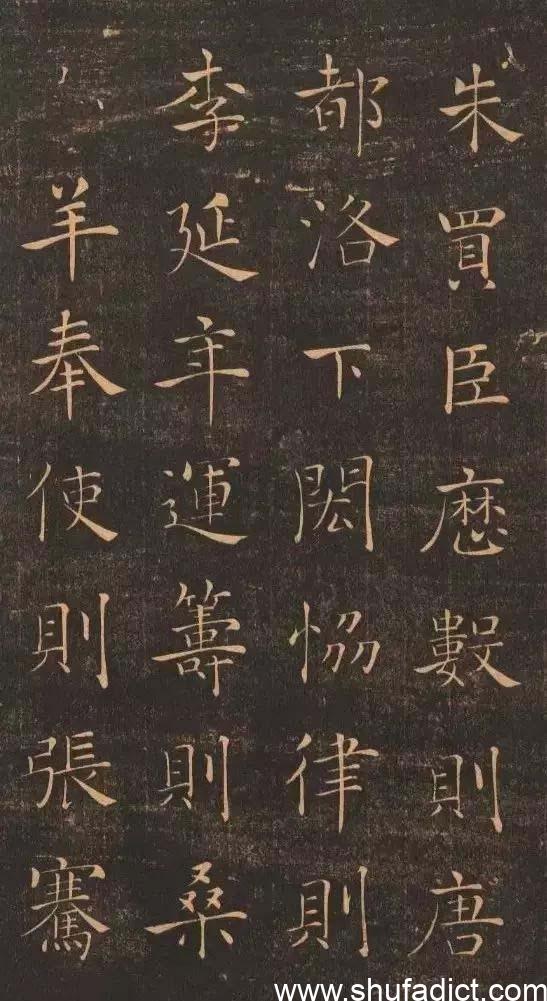 朱買臣歷數則唐
都洛下閎恊律則
李延年運籌則桑
羊奉使則張騫
www.shufadict.com